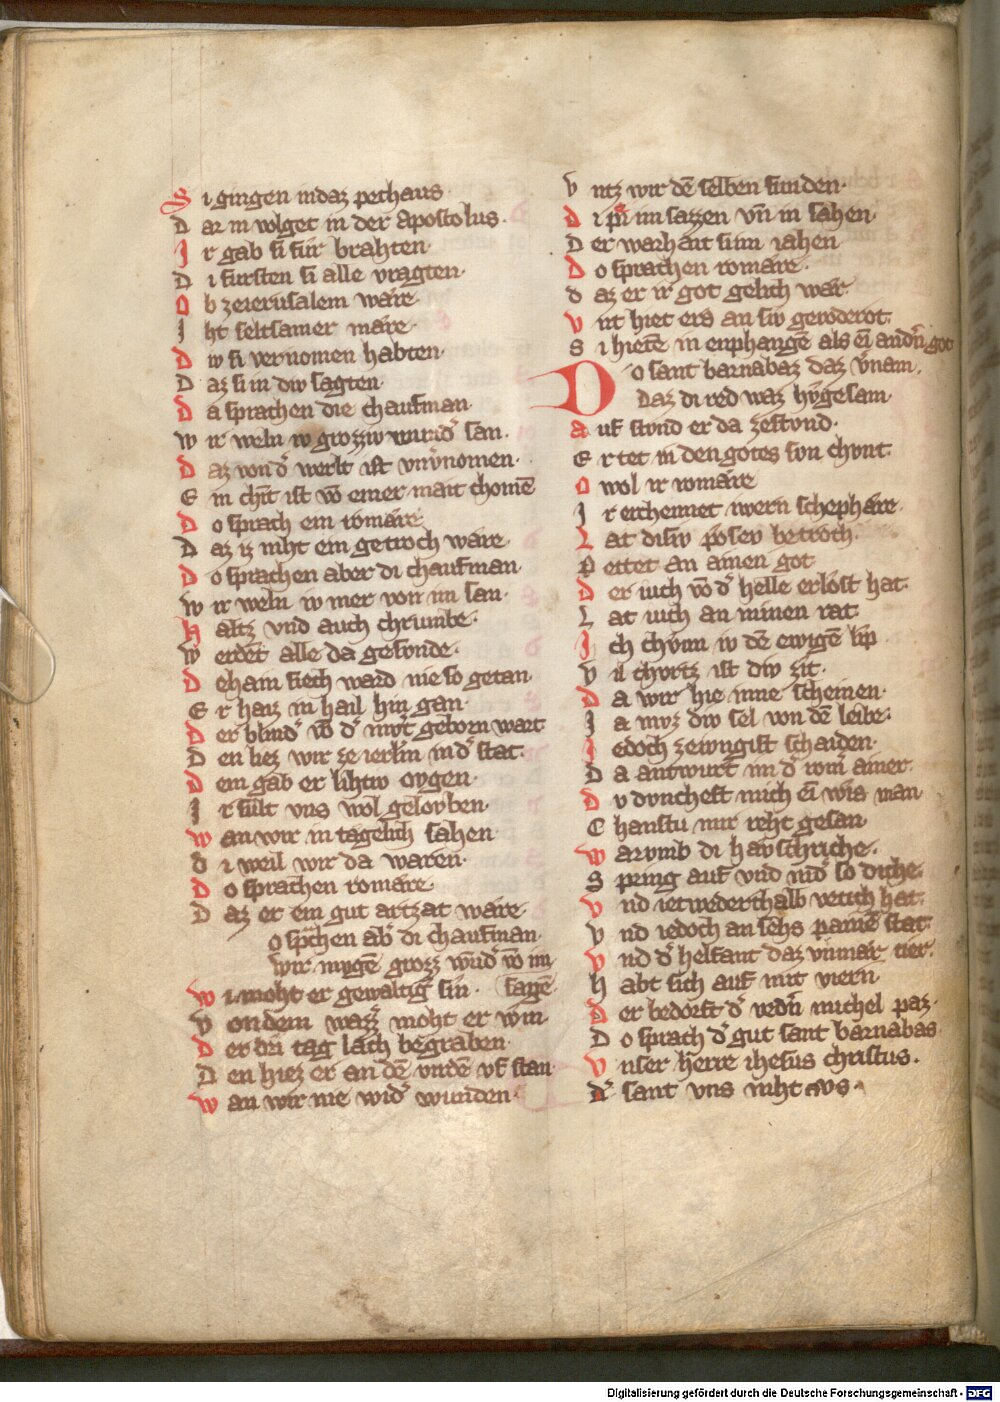 S i gingen in daz pethaus
D ar in volget in der apostolus.
J r gab si für brahten
D i fursten si alle vragten.
O b zeierusalem wäre
J ht seltsamer märe.
D iv si vernomen habten.
D az si in div sagten
D a sprachen die chaufman
W ir weln iv grozziv wundˢ san.
D az von dˢ werlt ist vnvˢnomen.
E in chīt ist vō einer mait chomē
D o sprach ein romäre
D az iz niht ein getroch wäre.
D o sprachen aber di chaufman
W ir weln iv mer von im san.
H altz vnd auch chrumbe.
W erdēt alle da gesvnde.
D eham siech ward nie so getan
E r haiz in hail hin gan.
D er blindˢ vō dˢ mvtˢ geborn wart
D en hez wir ze ierlīm in dˢ stat.
D em gab er lihtiv ovgen.
J r sült vns wol gelovben.
W an wir in tägelich sahen
D i weil wir da waren.
D o sprachen romäre.
D az er ein gut artzat wäre
o sp̄chen abˢ di chaufman.
wir mvgē grozz wūdˢ vō im
W i moht er gewaltigˢ sin. sagē.
V on dem wazzˢ moht er win
D er dri tag lach begraben.
D en hiez er an dē vndē vf stan
W an wir nie widˢ wunden.
V ntz wir dē selben funden.
D i pˢ im sazzen vn̄ in sahen.
D er warhäit si im iahen
D o sprachen romäre.
d az er ir got gelich wär.
V nt hiet erd an siv geroderot.
S i hietē in enphangē als eī andˢn got
D o sant barnabaz daz vˢnam.
Daz di red waz hýgesam.
A uf stvnd er da zestvnd.
E r tet in den gotes svn chvnt.
O wol ir romäre
J r erchennet iwern schephäre.
L at disiv pösev betroch.
P ettet an ainen got
D er iuch vō dˢ helle erlöst hat.
L at iuch an minen rat
J ch chvnn iv dē ewigē lip
V il chvrtz ist div zit.
D a wir hie inne scheinen.
J a mvz div sel von dē leibe.
J edoch zeivngist schaiden.
D a antwurt im dˢ romˢ ainer.
D v dvnchest mich eī wis man.
C hanstu mir reht gesan.
W arvmb di havschriche.
S pring auf vnd nidˢ so diche.
V nd ietwederthalb vettich hat.
V nd iedoch an sehs painē stat.
V nd dˢ helfant daz vnmär tier.
H abt sich auf mit viern
D er bedorft dˢ vedˢn michel paz.
D o sprach dˢ gut sant barnabas
V nser herre ihesus christus.
Dˢ sant vns niht avs.
Digitalisierung gefördert durch die Deutsche Forschungsgemeinschaft - DFG